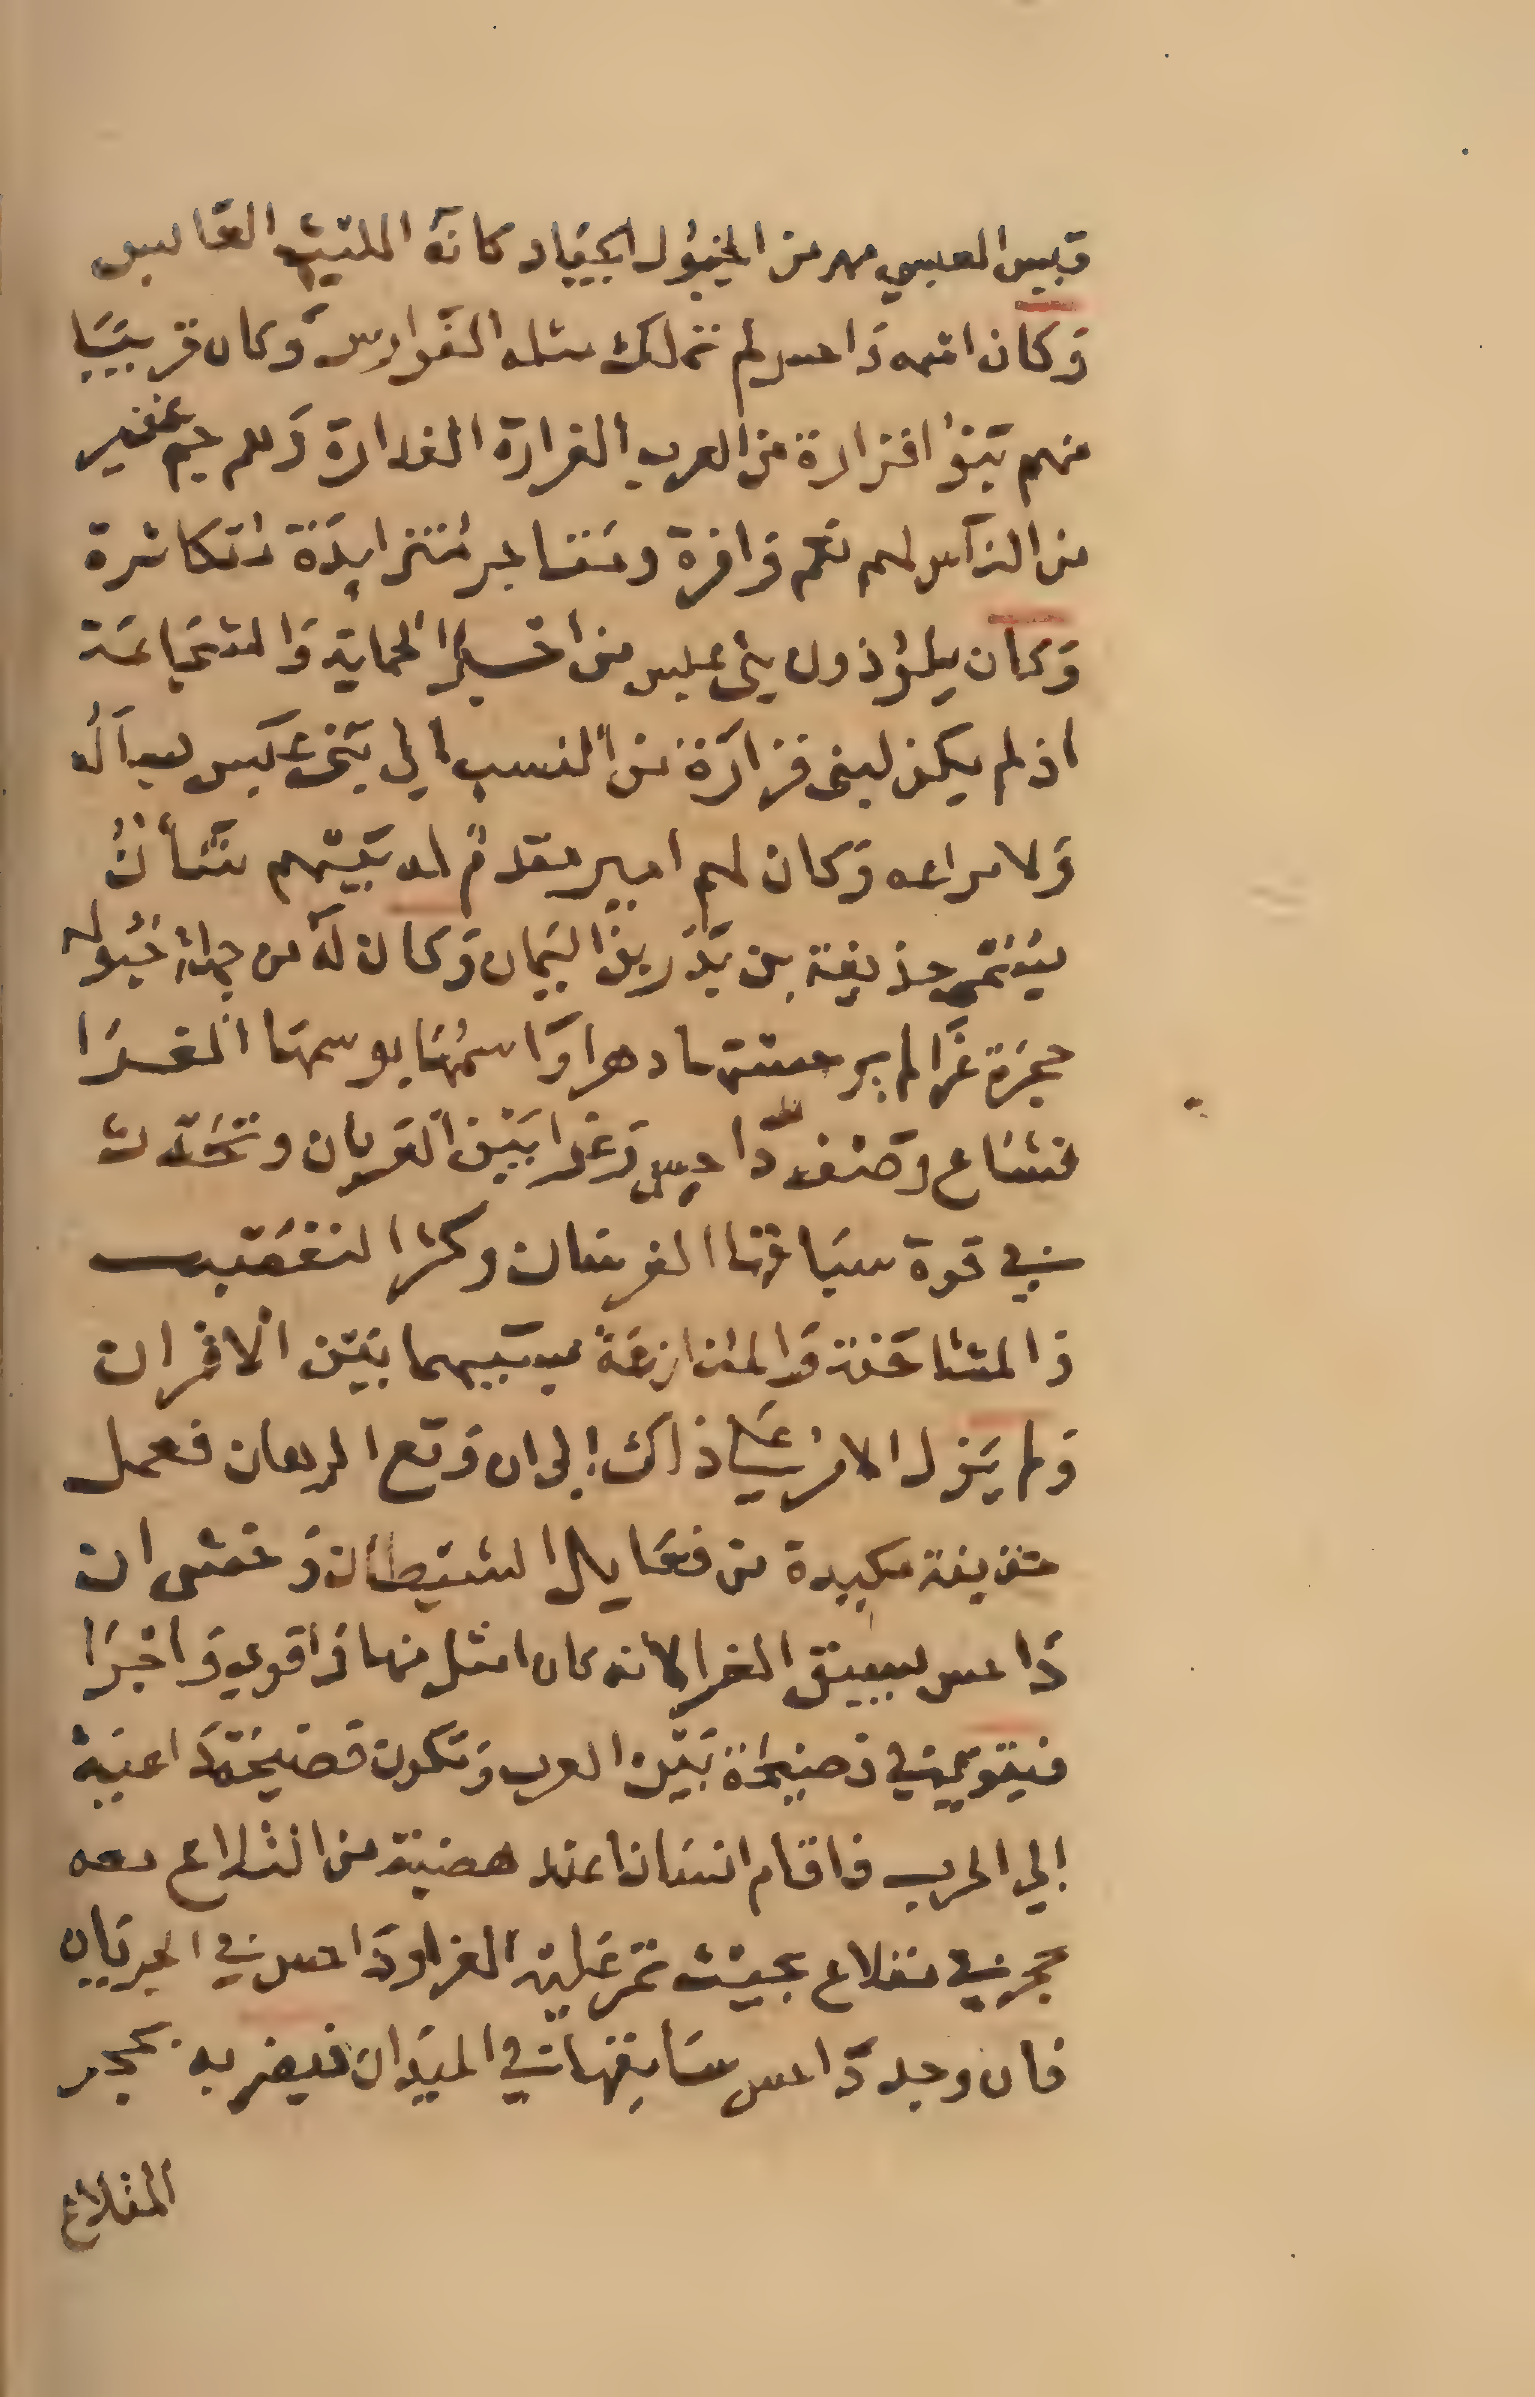 قيس العبسي مهر من الخيول الجياد كانه الليث العابس
وكان اسمه داحس لم تملك مثله الفوارس وكان قريبا
منهم بنوا فزارة من العرب الغدارة ولهم جم غفير
من الناس لهم نعم وافرة ومتاجر متزايدة متكاثرة
وكان يلوذون بني عبس من اجل الحماية والشجاعة
اذ لم يكن لبني فزارة من النسب الي بني عبس
ولا وكان لهم امير مقدم له بينهم شان
يسمي حذيفة بن بدر بن اليمان وكان له من جملة خيوله
حجرة غرا لم دهرا واسمها بوسمها الغبرا
فشاع وصف داحس وغدا بين العربان وتحدث
في قوة سباقها الفرسان وكثر التعصب
والمشاحنة والمنازعة بسببهما بين الاقران
ولم يزل الامر علي ذاك الي ان وقع الرهان فعمل
حذيفة مكيدة من فعايل الشيطان وخشي ان
داحس يسبق الغبرا لانه كان امثل منها واقوي واجرا
فيقو في فضيحة بين العرب وتكون فضيحته داعية
الي الحرب فاقام انسانا عند هضبة من التلاع معه
حجر في مقلاع بحيث تمر عليه الغبرا وداحس في الجريان
فان وجد داحس سابقها في الميدان فيضربه بحجر
المقلاع